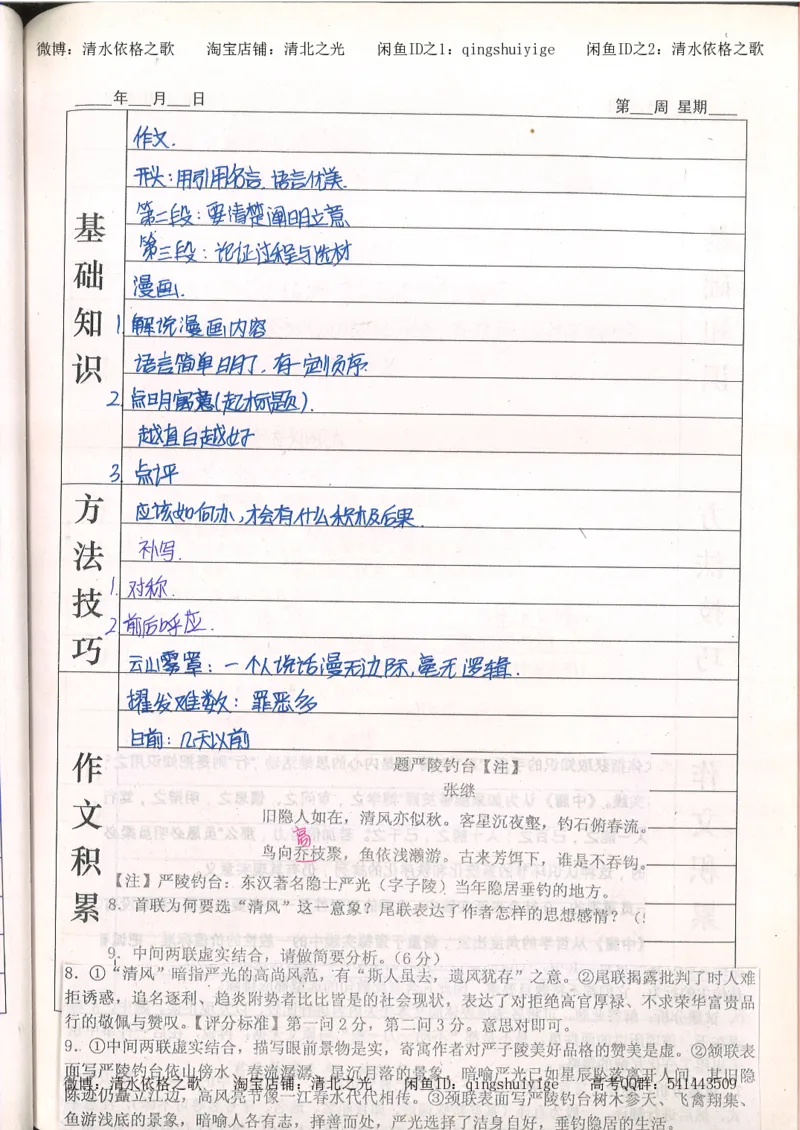 微博：清水依格之歌 淘宝店铺：清北之光 闲鱼ID之1：qingshuiyige 闲鱼ID之2：清水依格之歌
____年___月___日 第___周 星期____
基础知识
作文.
开头：用引用名言.语言优美.
第二段：要清楚阐明立意
第三段：论证过程与选材
漫画.
1. 解说漫画内容
语言简单明了，有一定顺序.
2. 点明寓意(起标题).
越直白越好
3. 点评
方法技巧
应该如何办,才会有什么积极后果.
补写.
1. 对称.
2. 前后呼应.
云山雾罩：一个人说话漫无边际,毫无逻辑.
作文积累
擢发难数：罪恶多
日前：几天以前
题严陵钓台【注】
张继
旧隐人如在，清风亦似秋。客星沉夜壑，钓石俯春流。
高
鸟向乔枝聚，鱼依浅濑游。古来芳饵下，谁是不吞钩。
【注】严陵钓台：东汉著名隐士严光（字子陵）当年隐居垂钓的地方。
8．首联为何要选“清风”这一意象？尾联表达了作者怎样的思想感情？
9．中间两联虚实结合，请做简要分析。（6分）
8．①“清风”暗指严光的高尚风范，有“斯人虽去，遗风犹存”之意。②尾联揭露批判了时人难
拒诱惑，追名逐利、趋炎附势者比比皆是的社会现状，表达了对拒绝高官厚禄、不求荣华富贵品
行的敬佩与赞叹。【评分标准】第一问2分，第二问3分。意思对即可。
9．①中间两联虚实结合，描写眼前景物是实，寄寓作者对严子陵美好品格的赞美是虚。②颔联表
面写严陵钓台依山傍水、春流潺潺、星沉月落的景象，暗喻严光已如星辰坠落离开人间，其旧隐
微博：清水依格之歌 淘宝店铺：清北之光 闲鱼ID：qingshuiyige 高考QQ群：541443509
陈迹仍矗立江边，高风亮节像一江春水代代相传。③颈联表面写严陵钓台树木参天、飞禽翔集、
鱼游浅底的景象，暗喻人各有志，择善而处，严光选择了洁身自好，垂钓隐居的生活。